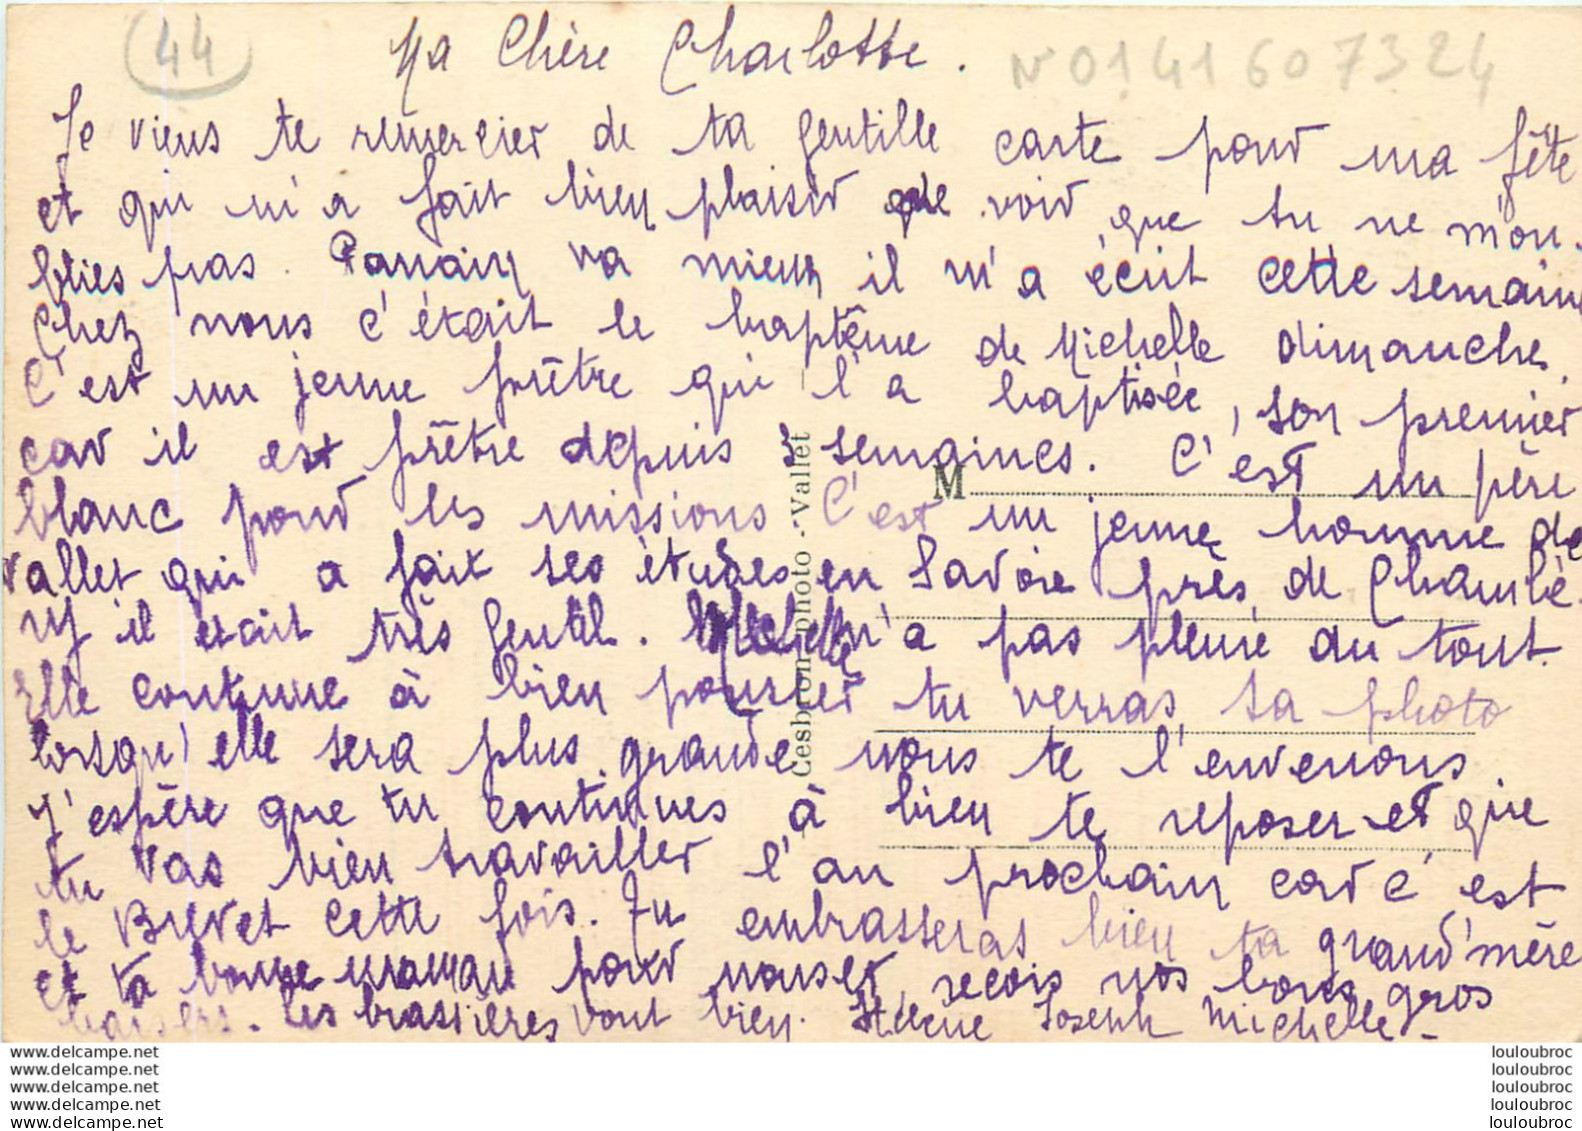 44
Ma Chère Charlotte.
N° 0141607324
Je viens te remercier de ta gentille carte pour ma fête
et qui m'a fait bien plaisir de voir que tu ne m'ou-
blies pas. Parrain va mieux il m'a écrit cette semaine
Chez nous c'était le baptême de Michelle dimanche.
C'est un jeune prêtre qui l'a baptisée, son premier
car il est prêtre depuis 3 semaines. C'est un père
blanc pour les missions C'est un jeune homme de
Vallet qui a fait ses études en Savoie près de Chambé-
ry il était très gentil. Michelle n'a pas pleuré du tout.
Elle continue à bien pousser tu verras sa photo
lorsqu'elle sera plus grande nous te l'enverrons.
J'espère que tu continues à bien te reposer et que
tu vas bien travailler l'an prochain car c'est
le Brevet cette fois. Tu embrasseras bien ta grand'mère
et ta bonne maman pour nous et reçois nos bons gros
baisers. Les brassières vont bien. Hélène Joseph Michelle
M
Cesbron-photo - Vallet
www.delcampe.net
www.delcampe.net
www.delcampe.net
www.delcampe.net
www.delcampe.net
louloubroc
louloubroc
louloubroc
louloubroc
louloubroc